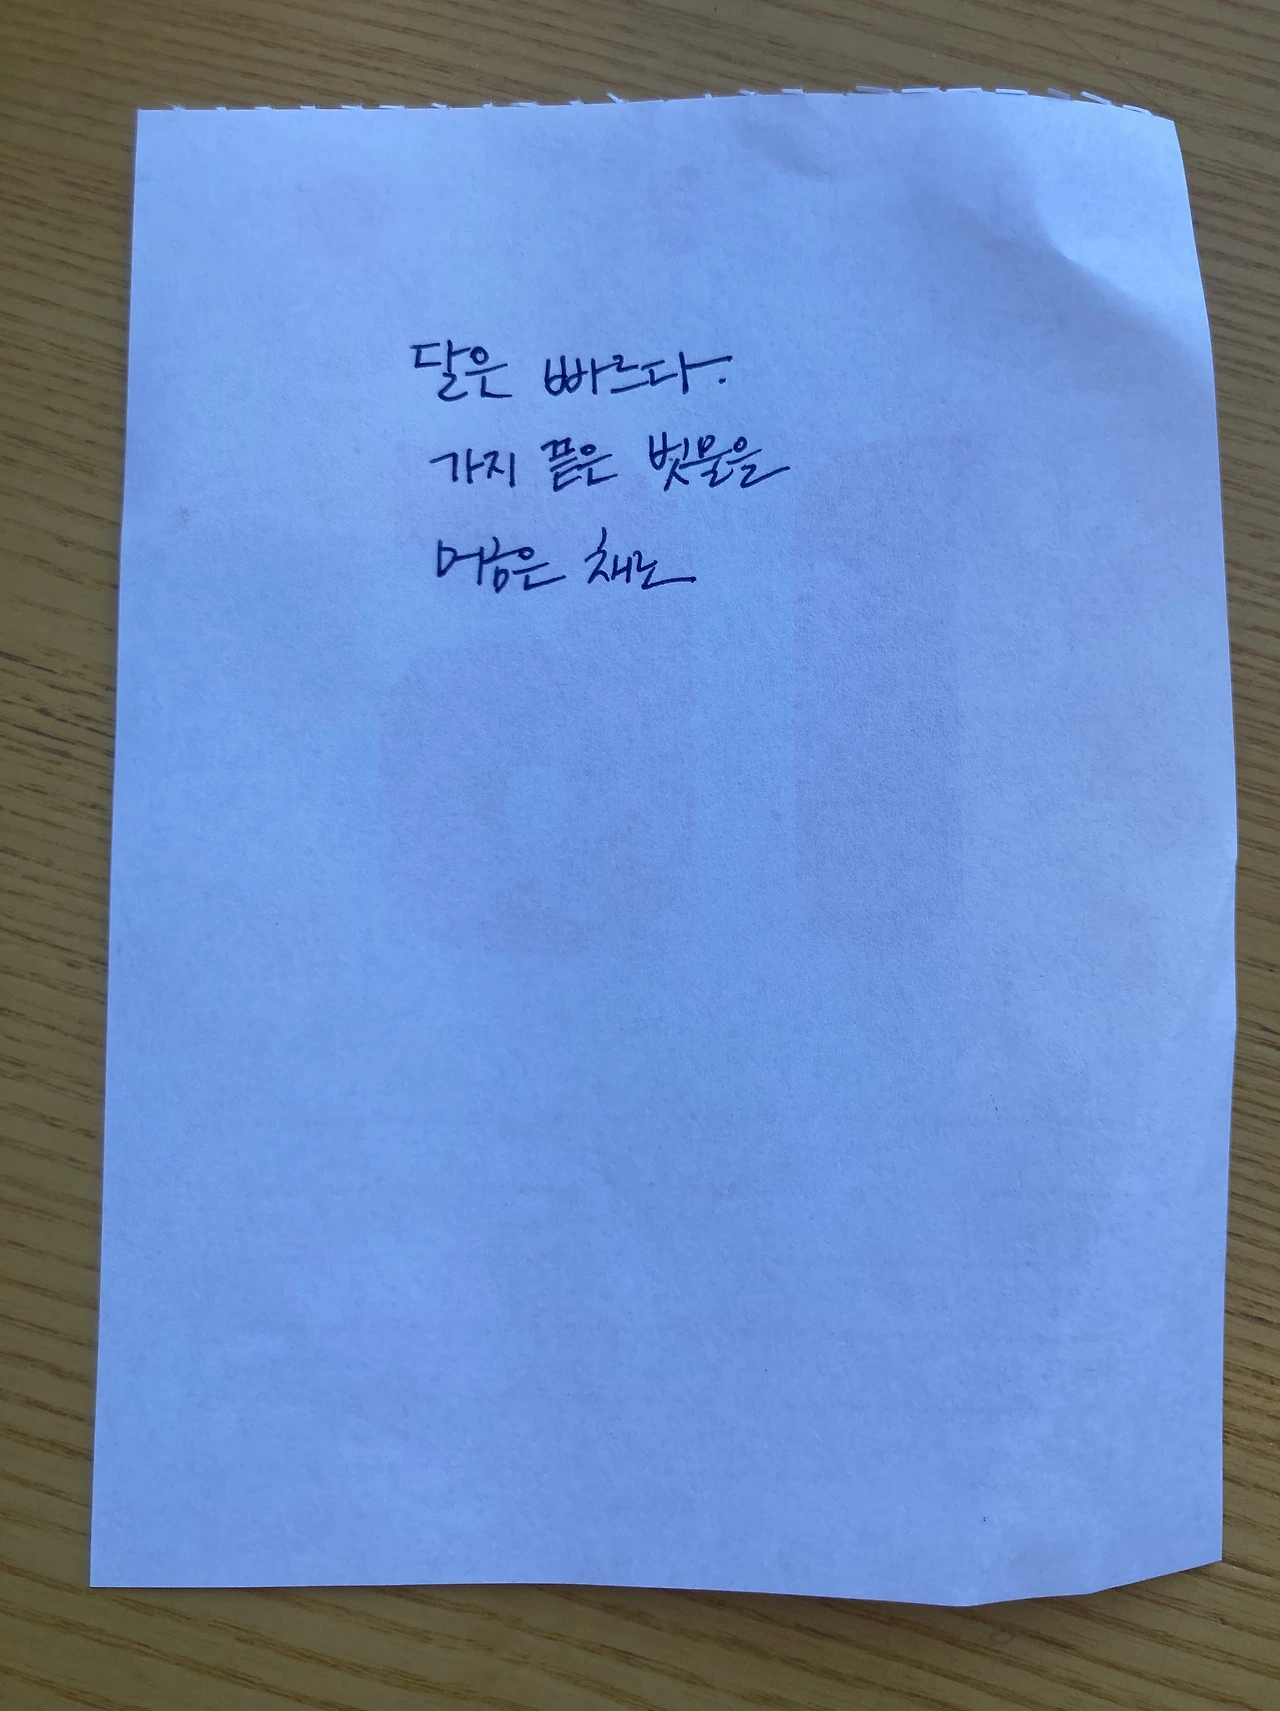 달은 빠르다:
가지 끝은 빗물을
머금은 채로